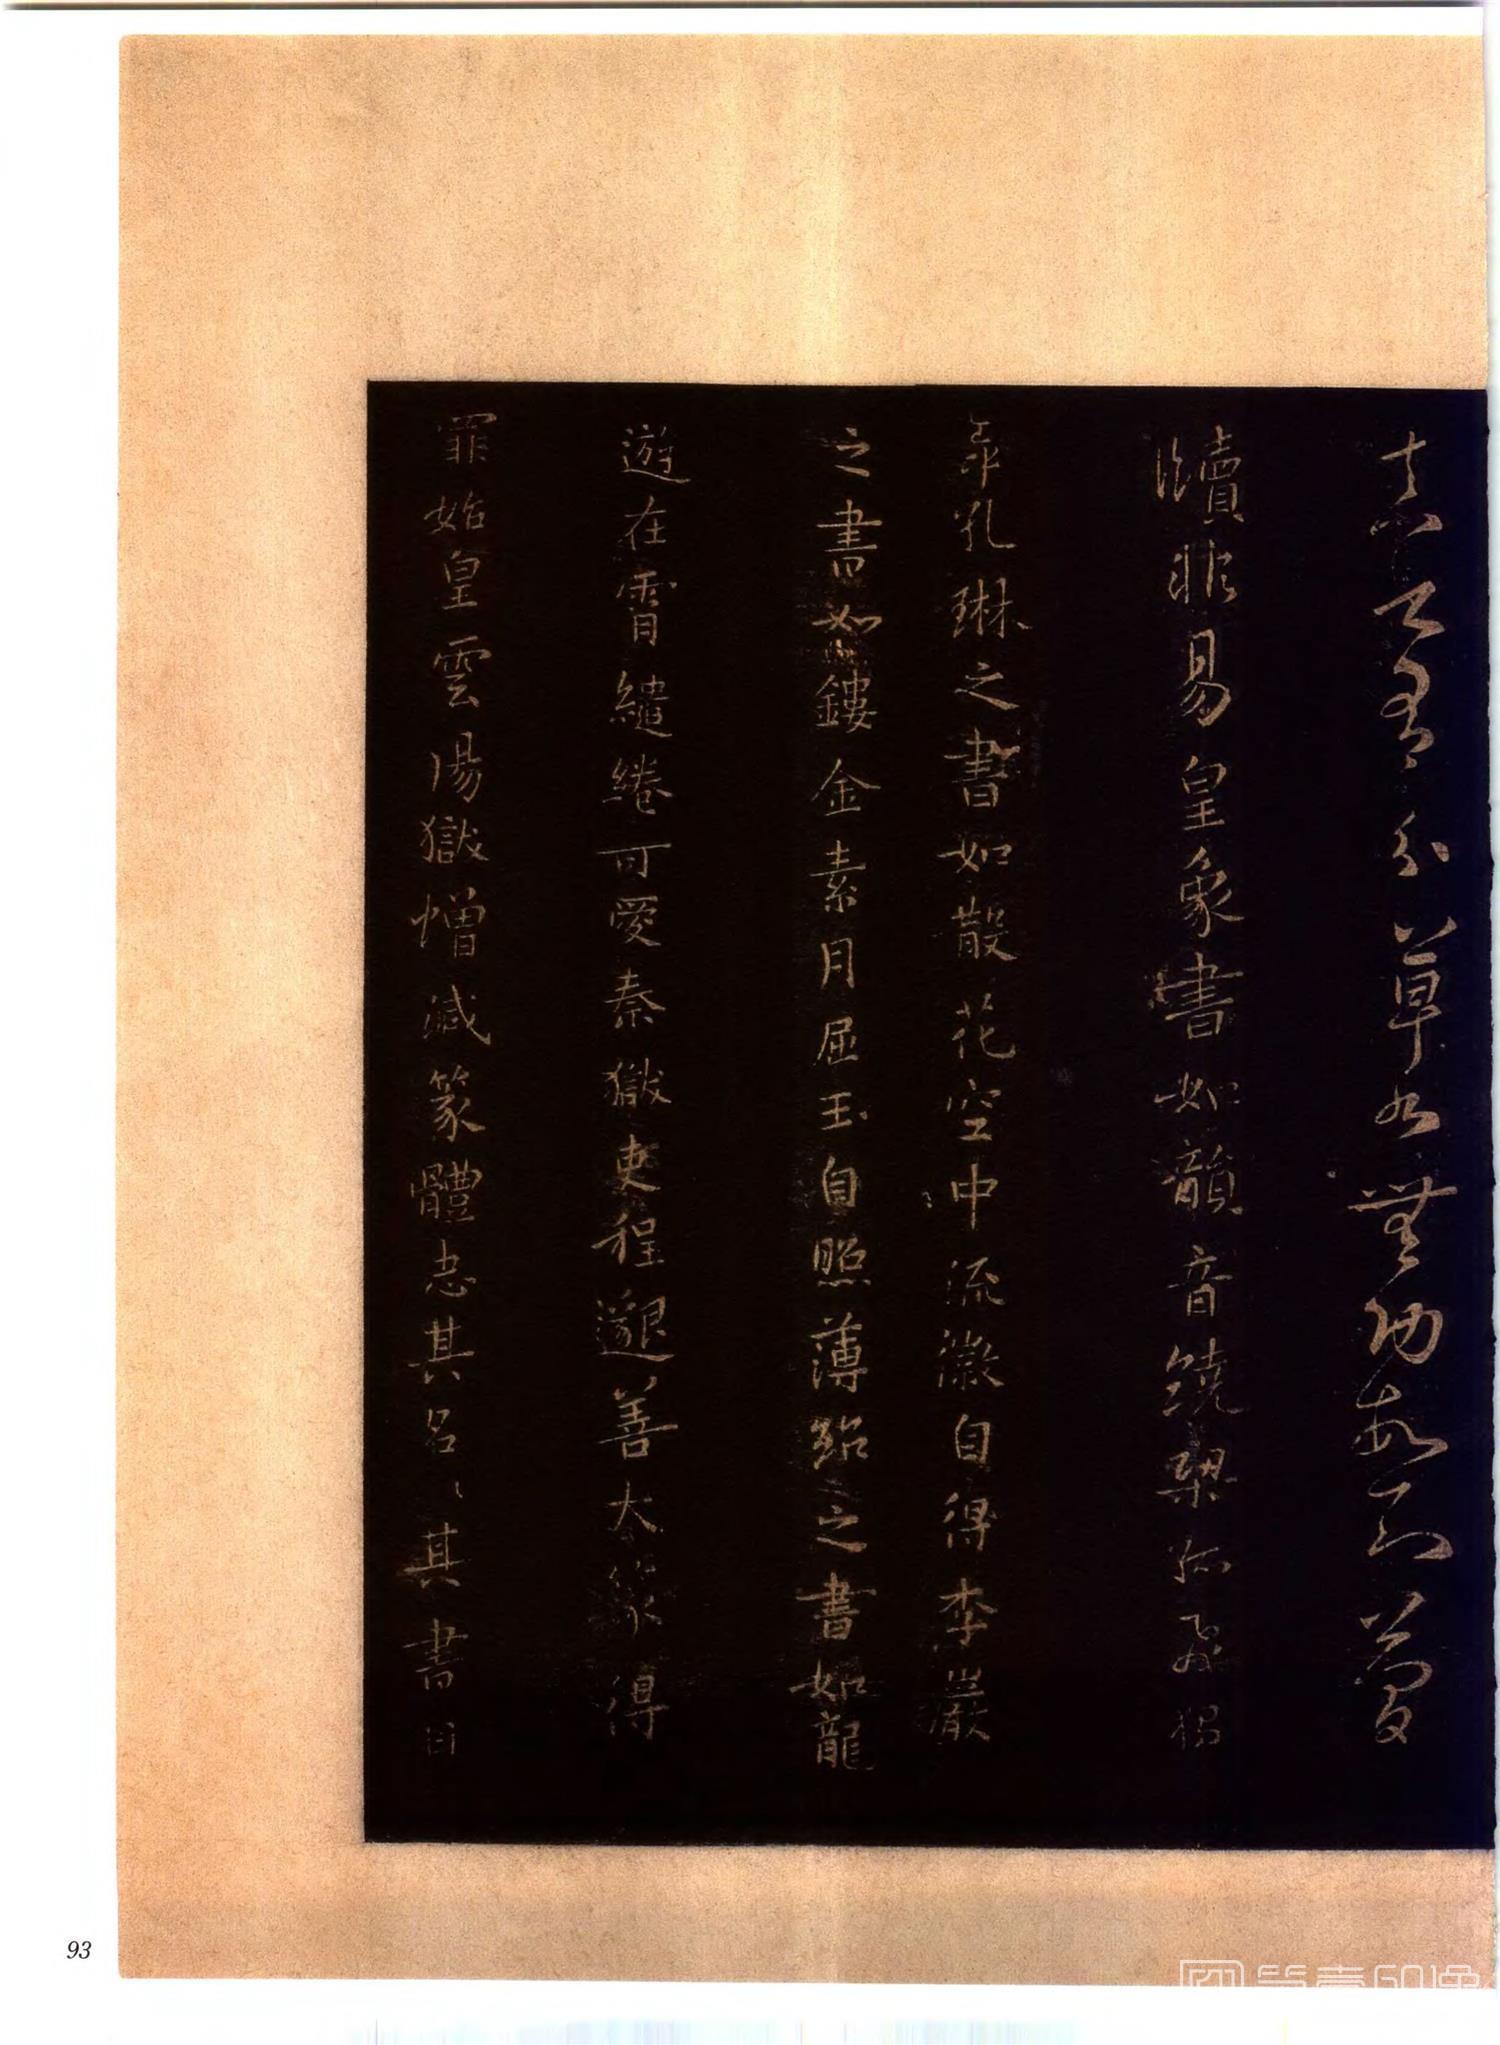 真乃吾分草書無功故知簡
牘非易皇象書如韻音繞梁孤飛獨
孔琳之書如散花空中流徽自得李巖
之書如鏤金素月屈玉自照薄紹之書如龍
遊在霄繾綣可愛秦獄吏程邈善大篆得
罪始皇雲陽獄憎減篆體志其名、其書曰
93